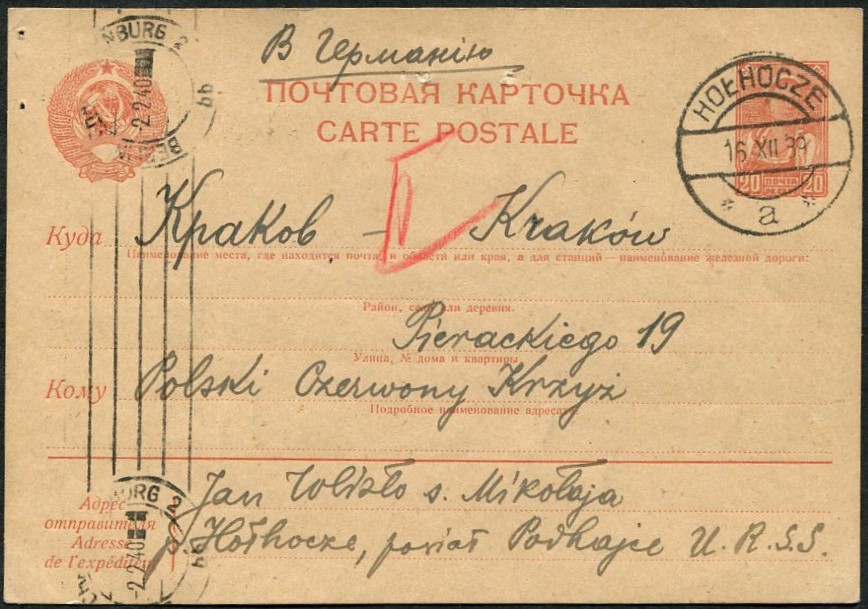 В Германію
ПОЧТОВАЯ КАРТОЧКА
CARTE POSTALE
HOŁHOCZE
16 XII 39
a
20 ПОЧТА 20
NBURG 2
-2.2.40
BERLIN
bb
Куда Краков – Kraków
Наименование места, где находится почта, и области или края, а для станций — наименование железной дороги:
Район, село или деревня.
Pierackiego 19
Улица, № дома и квартиры
Кому Polski Czerwony Krzyż
Подробное наименование адресата
Jan Wolisło s. Mikołaja
Адрес
отправителя
Hołhocze, powiat Podhajce U.R.S.S.
Adresse
de l'expéditeur
BURG 2
-2.2.40